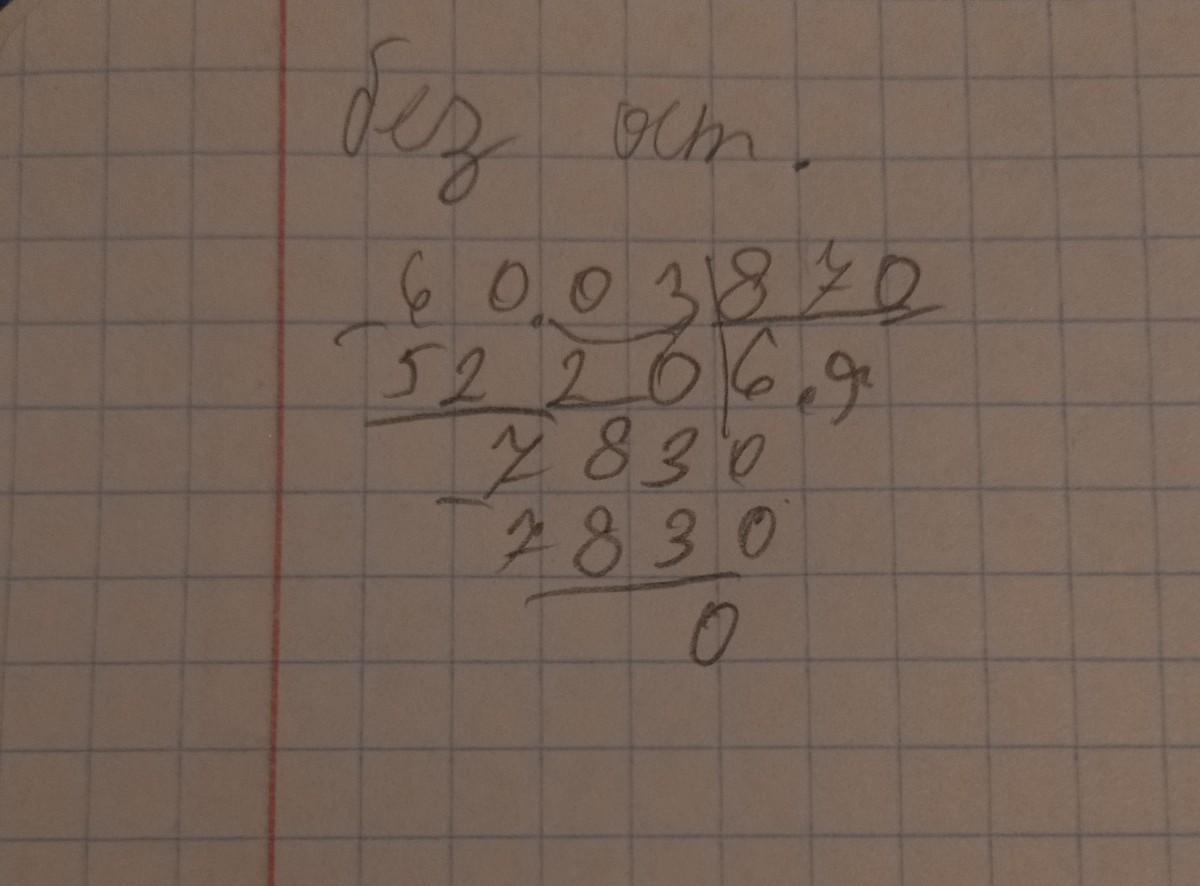 без ост.
60.03 870
5220 6.9
7830
7830
0